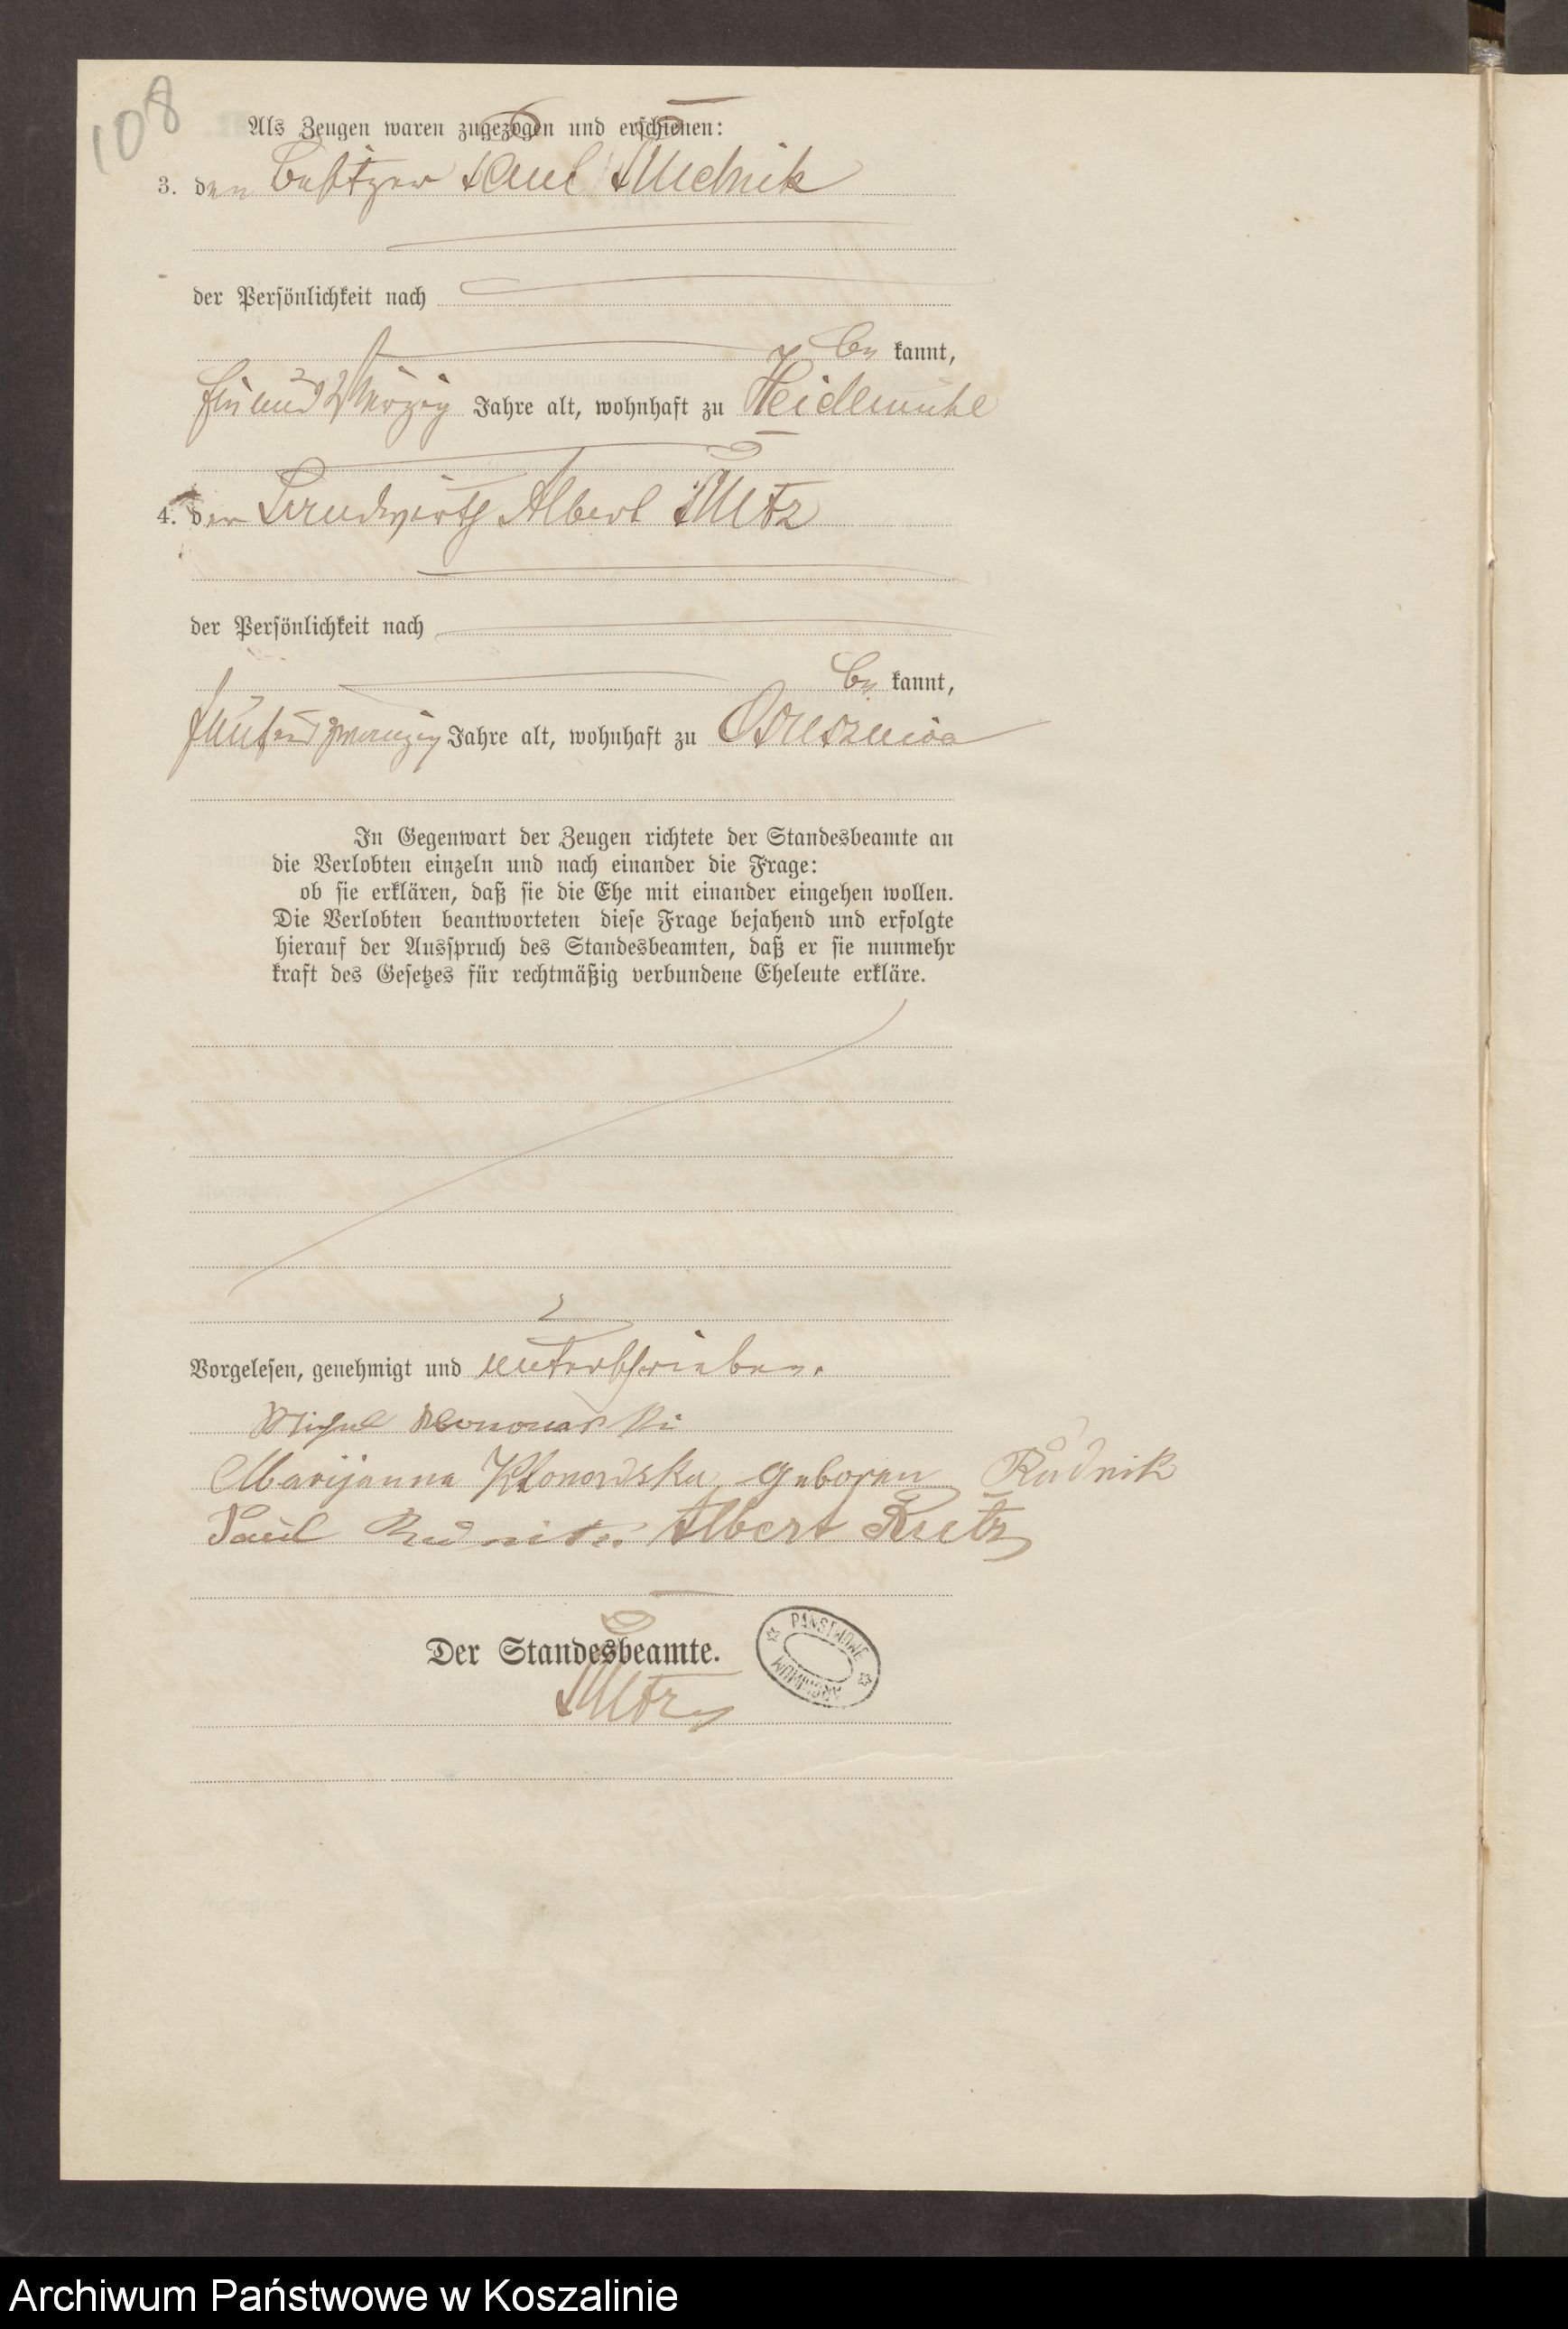 108
Als Zeugen waren zugezogen und erschienen:
3. den Besitzer Paul Rudnik
der Persönlichkeit nach
be kannt,
vierzig Jahre alt, wohnhaft zu Heidemühl
4. den Landwirth Albert Rutz
der Persönlichkeit nach
be kannt,
fünfundzwanzig Jahre alt, wohnhaft zu Ossusznica
In Gegenwart der Zeugen richtete der Standesbeamte an
die Verlobten einzeln und nach einander die Frage:
ob sie erklären, daß sie die Ehe mit einander eingehen wollen.
Die Verlobten beantworteten diese Frage bejahend und erfolgte
hierauf der Ausspruch des Standesbeamten, daß er sie nunmehr
kraft des Gesetzes für rechtmäßig verbundene Eheleute erkläre.
Vorgelesen, genehmigt und unterschrieben.
Marijanna Klonowska geboren Rudnik
Paul Rudnik. Albert Rutz
Der Standesbeamte.
PAŃSTWOWE ARCHIWUM
Rutz
Archiwum Państwowe w Koszalinie